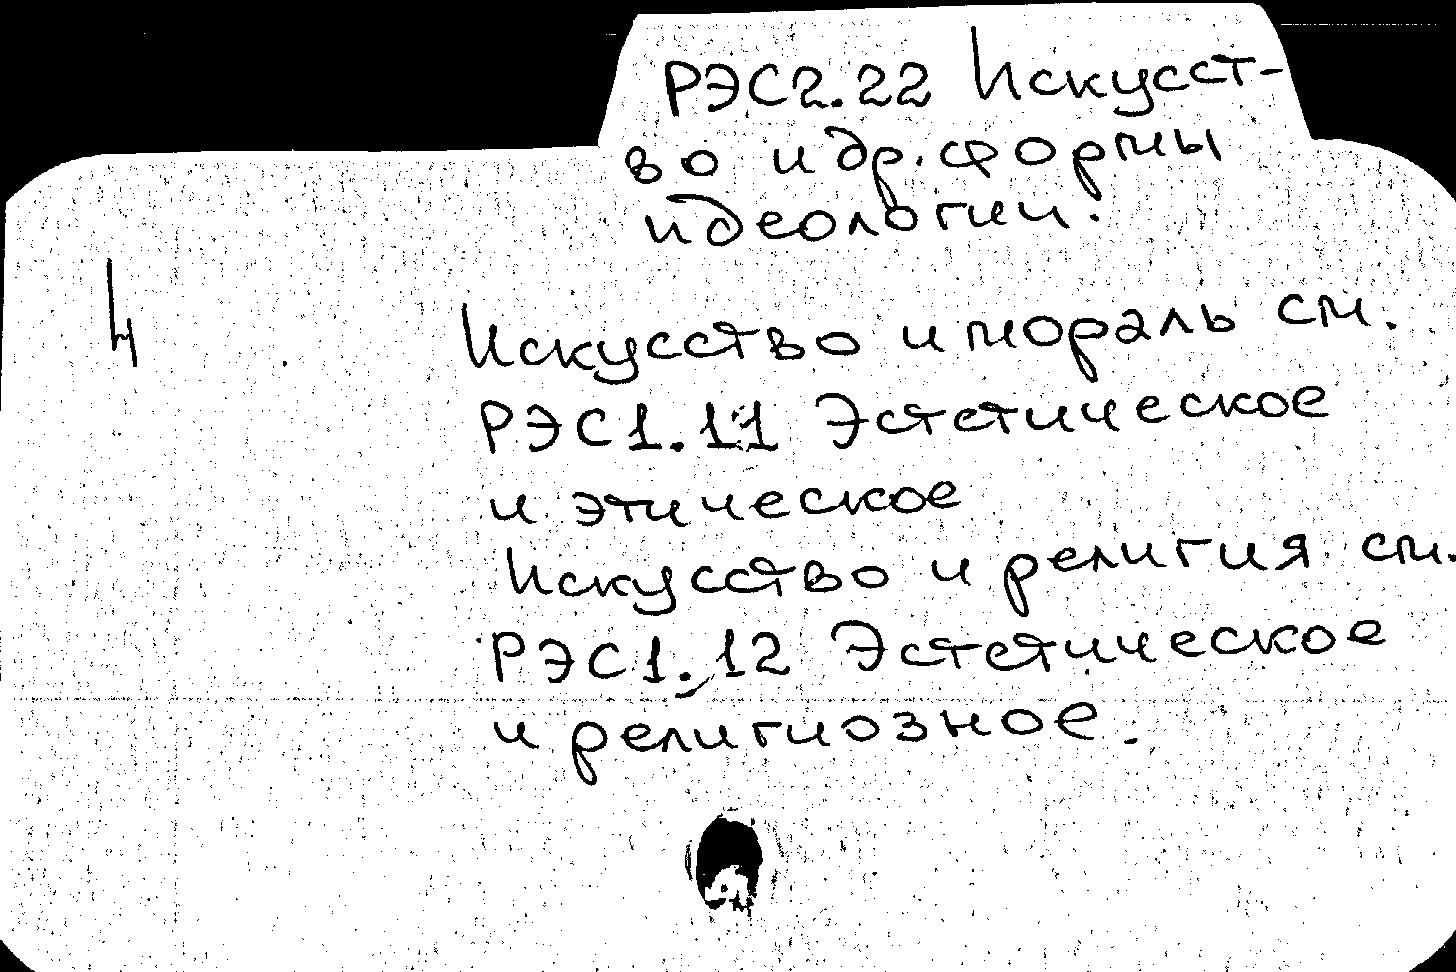 РЭС2.22 Искусст-
во и др. формы
идеологии.
4
Искусство и мораль см.
РЭС1.11 Эстетическое
и этическое
Искусство и религия см.
РЭС1.12 Эстетическое
и религиозное.